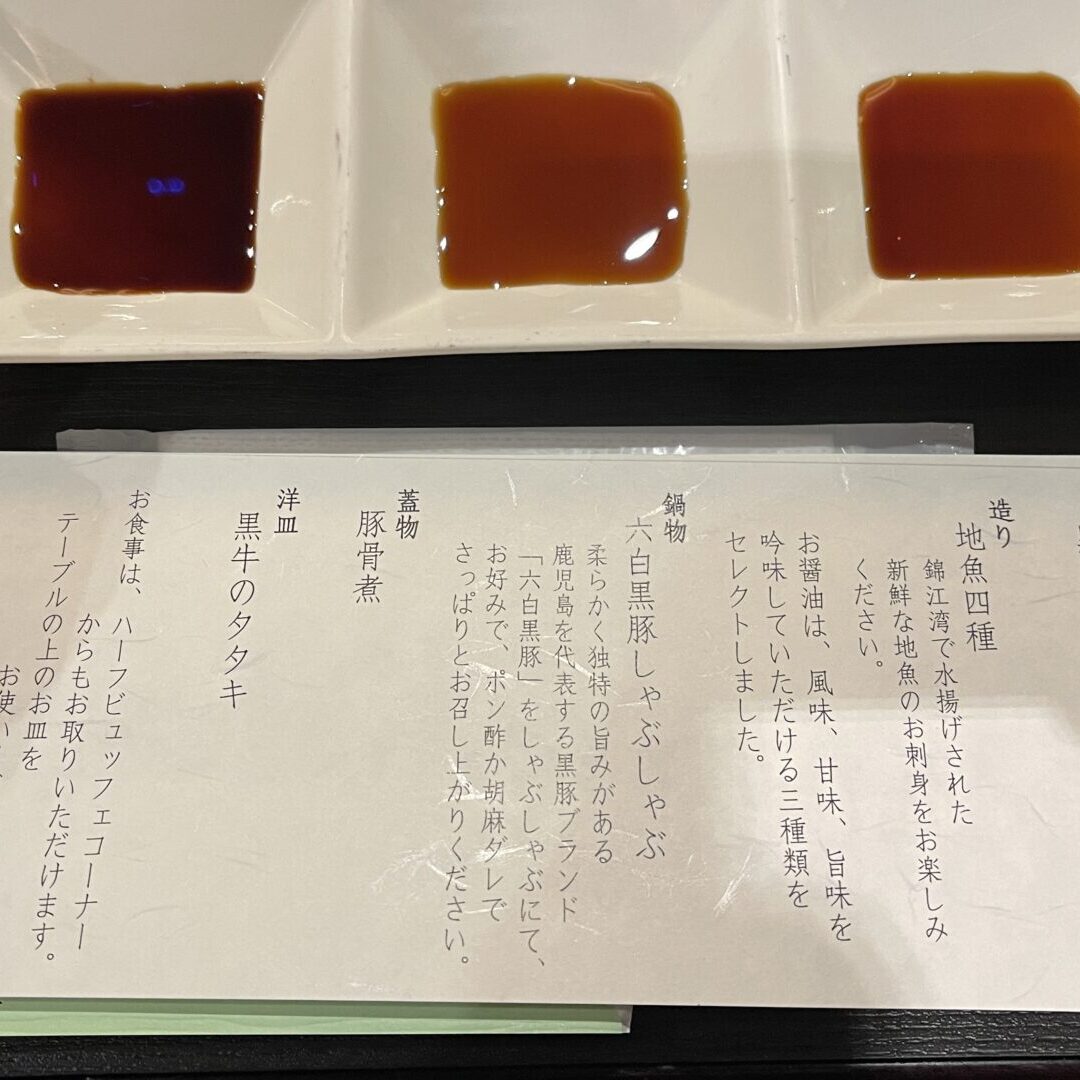 造り
地魚四種
錦江湾で水揚げされた
新鮮な地魚のお刺身をお楽しみ
ください。
お醤油は、風味、甘味、旨味を
吟味していただける三種類を
セレクトしました。
鍋物
六白黒豚しゃぶしゃぶ
柔らかく独特の旨みがある
鹿児島を代表する黒豚ブランド
「六白黒豚」をしゃぶしゃぶにて、
お好みで、ポン酢か胡麻ダレで
さっぱりとお召し上がりください。
蓋物
豚骨煮
洋皿
黒牛のタタキ
お食事は、ハーフビュッフェコーナー
からもお取りいただけます。
テーブルの上のお皿を
お使い